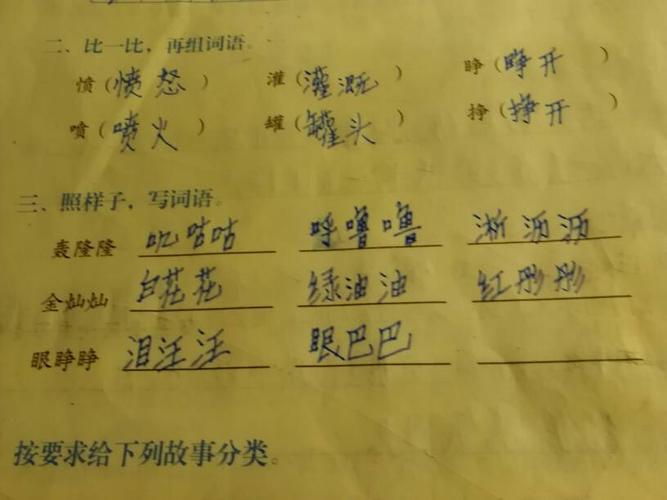 二、比一比，再组词语。
愤（愤怒） 灌（灌溉） 睁（睁开）
喷（喷火） 罐（罐头） 挣（挣开）
三、照样子，写词语。
轰隆隆 叽咕咕 呼噜噜 淅沥沥
金灿灿 白花花 绿油油 红彤彤
眼睁睁 泪汪汪 眼巴巴
按要求给下列故事分类。